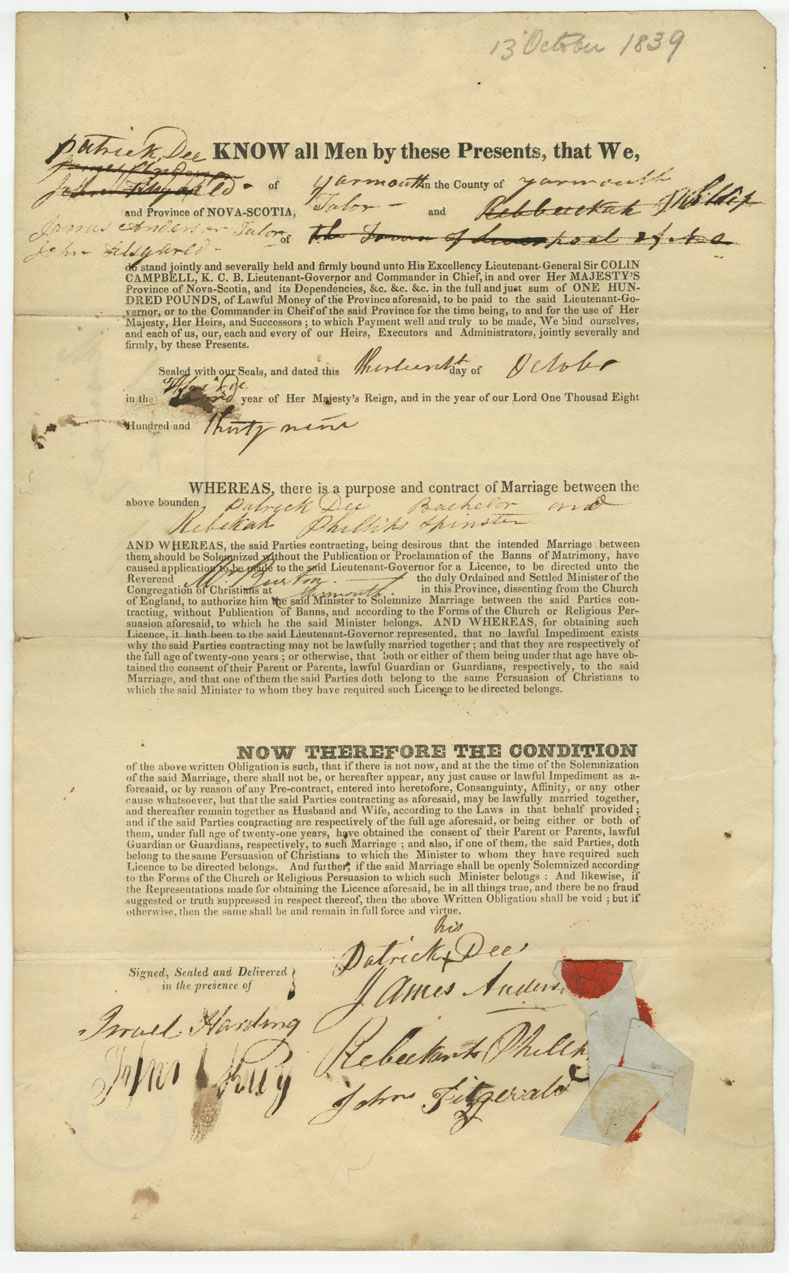 13 October 1839
Patrick Dee KNOW all Men by these Presents, that We,
of Yarmouth in the County of Yarmouth
and Province of NOVA-SCOTIA, Talor - and Rebbeckah Phillip
James Anderson Talor of the Town of Liverpool of N S
John
do stand jointly and severally held and firmly bound unto His Excellency Lieutenant-General Sir COLIN
CAMPBELL, K. C. B. Lieutenant-Governor and Commander in Chief, in and over Her MAJESTY'S
Province of Nova-Scotia, and its Dependencies, &c. &c. &c. in the full and just sum of ONE HUN-
DRED POUNDS, of Lawful Money of the Province aforesaid, to be paid to the said Lieutenant-Go-
vernor, or to the Commander in Cheif of the said Province for the time being, to and for the use of Her
Majesty, Her Heirs, and Successors ; to which Payment well and truly to be made, We bind ourselves,
and each of us, our, each and every of our Heirs, Executors and Administrators, jointly severally and
firmly, by these Presents.
Sealed with our Seals, and dated this thirteenth day of October
in the year of Her Majesty's Reign, and in the year of our Lord One Thousad Eight
Hundred and thirty nine
WHEREAS, there is a purpose and contract of Marriage between the
above bounden Patrick Dee Bachelor and
Rebekah Phillips Spinster
AND WHEREAS, the said Parties contracting, being desirous that the intended Marriage between
them should be Solemnized without the Publication or Proclamation of the Banns of Matrimony, have
caused application to be made to the said Lieutenant-Governor for a Licence, to be directed unto the
Reverend Mr Burton the duly Ordained and Settled Minister of the
Congregation of Christians at Yarmouth in this Province, dissenting from the Church
of England, to authorize him the said Minister to Solemnize Marriage between the said Parties con-
tracting, without Publication of Banns, and according to the Forms of the Church or Religious Per-
suasion aforesaid, to which he the said Minister belongs. AND WHEREAS, for obtaining such
Licence, it hath been to the said Lieutenant-Governor represented, that no lawful Impediment exists
why the said Parties contracting may not be lawfully married together ; and that they are respectively of
the full age of twenty-one years ; or otherwise, that both or either of them being under that age have ob-
tained the consent of their Parent or Parents, lawful Guardian or Guardians, respectively, to the said
Marriage, and that one of them the said Parties doth belong to the same Persuasion of Christians to
which the said Minister to whom they have required such Licence to be directed belongs.
NOW THEREFORE THE CONDITION
of the above written Obligation is such, that if there is not now, and at the the time of the Solemnization
of the said Marriage, there shall not be, or hereafter appear, any just cause or lawful Impediment as a-
foresaid, or by reason of any Pre-contract, entered into heretofore, Consanguinty, Affinity, or any other
cause whatsoever, but that the said Parties contracting as aforesaid, may be lawfully married together,
and thereafter remain together as Husband and Wife, according to the Laws in that behalf provided ;
and if the said Parties contracting are respectively of the full age aforesaid, or being either or both of
them, under full age of twenty-one years, have obtained the consent of their Parent or Parents, lawful
Guardian or Guardians, respectively, to such Marriage ; and also, if one of them, the said Parties, doth
belong to the same Persuasion of Christians to which the Minister to whom they have required such
Licence to be directed belongs. And further, if the said Marriage shall be openly Solemnized according
to the Forms of the Church or Religious Persuasion to which such Minister belongs : And likewise, if
the Representations made for obtaining the Licence aforesaid, be in all things true, and there be no fraud
suggested or truth suppressed in respect thereof, then the above Written Obligation shall be void ; but if
otherwise, then the same shall be and remain in full force and virtue.
his
Patrick x Dee
Signed, Sealed and Delivered
in the presence of
James Anders
Israel Harding
Rebeckah Phillip
John Fitzgerald